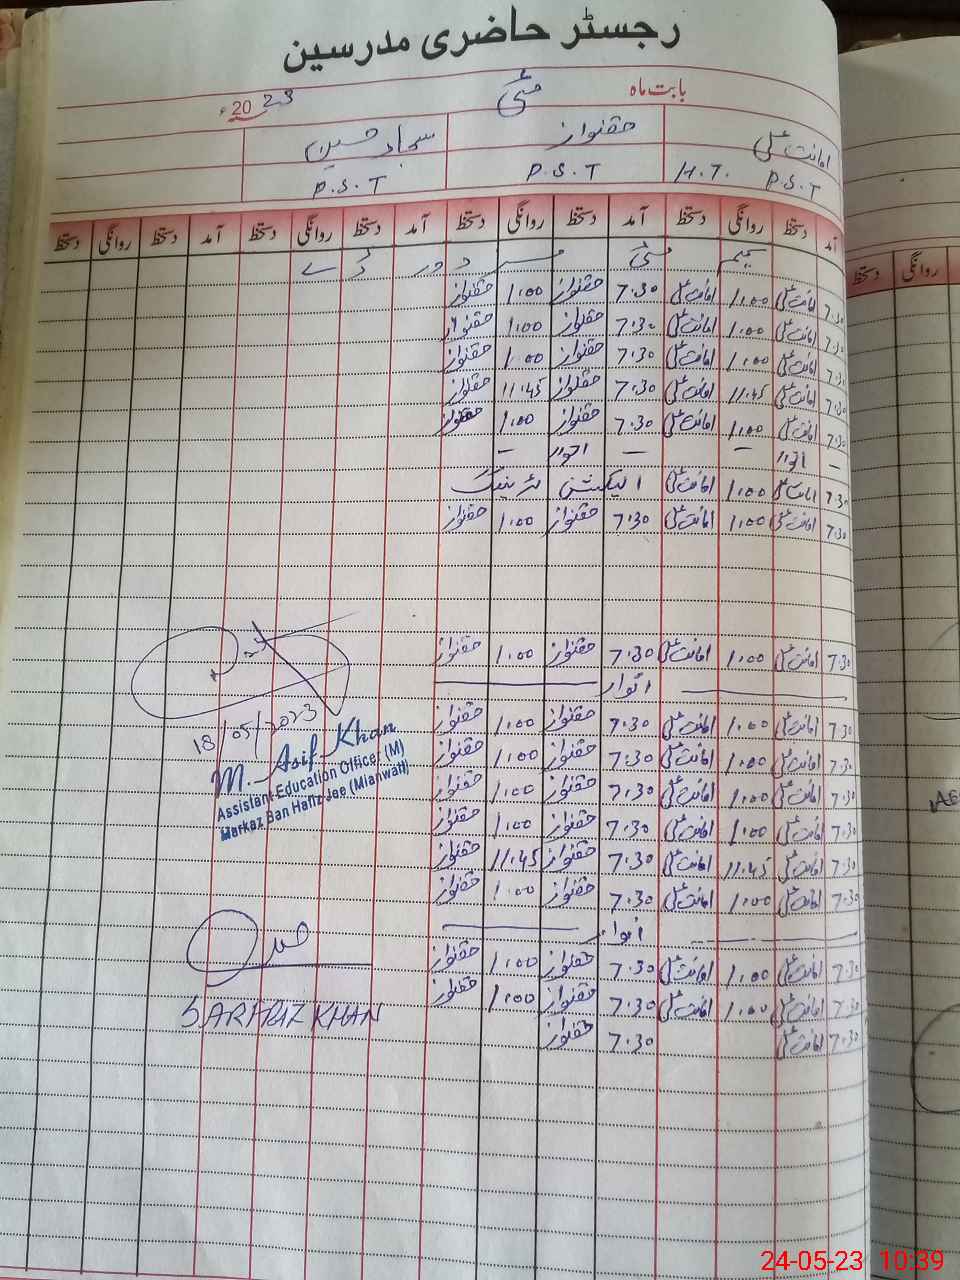 رجسٹر حاضری مدرسین
بابت ماہ مئی 2023ء
امانت علی حقنواز سجاد حسین
H.T. P.S.T P.S.T P.S.T
آمد دستخط روانگی دستخط آمد دستخط روانگی دستخط آمد دستخط روانگی دستخط آمد دستخط روانگی دستخط
یکم مئی مزدور ڈے
7:30 امانت علی 1:00 امانت علی 7:30 حقنواز 1:00 حقنواز
7:30 امانت علی 1:00 امانت علی 7:30 حقنواز 1:00 حقنواز
7:30 امانت علی 1:00 امانت علی 7:30 حقنواز 1:00 حقنواز
7:30 امانت علی 11:45 امانت علی 7:30 حقنواز 11:45 حقنواز
7:30 امانت علی 1:00 امانت علی 7:30 حقنواز 1:00 حقنواز
— اتوار — — اتوار —
7:30 امانت علی 1:00 امانت علی الیکشن ٹریننگ
7:30 امانت علی 1:00 امانت علی 7:30 حقنواز 1:00 حقنواز
7:30 امانت علی 1:00 امانت علی 7:30 حقنواز 1:00 حقنواز
اتوار
7:30 امانت علی 1:00 امانت علی 7:30 حقنواز 1:00 حقنواز
7:30 امانت علی 1:00 امانت علی 7:30 حقنواز 1:00 حقنواز
7:30 امانت علی 1:00 امانت علی 7:30 حقنواز 1:00 حقنواز
7:30 امانت علی 1:00 امانت علی 7:30 حقنواز 1:00 حقنواز
7:30 امانت علی 11:45 امانت علی 7:30 حقنواز 11:45 حقنواز
7:30 امانت علی 1:00 امانت علی 7:30 حقنواز 1:00 حقنواز
اتوار
7:30 امانت علی 1:00 امانت علی 7:30 حقنواز 1:00 حقنواز
7:30 امانت علی 1:00 امانت علی 7:30 حقنواز 1:00 حقنواز
7:30 امانت علی 7:30 حقنواز
18/05/2023
M. Asif Khan
Assistant Education Officer (M)
Markaz Ban Hafiz Jee (Mianwali)
SARFRAZ KHAN
روانگی دستخط
24-05-23 10:39